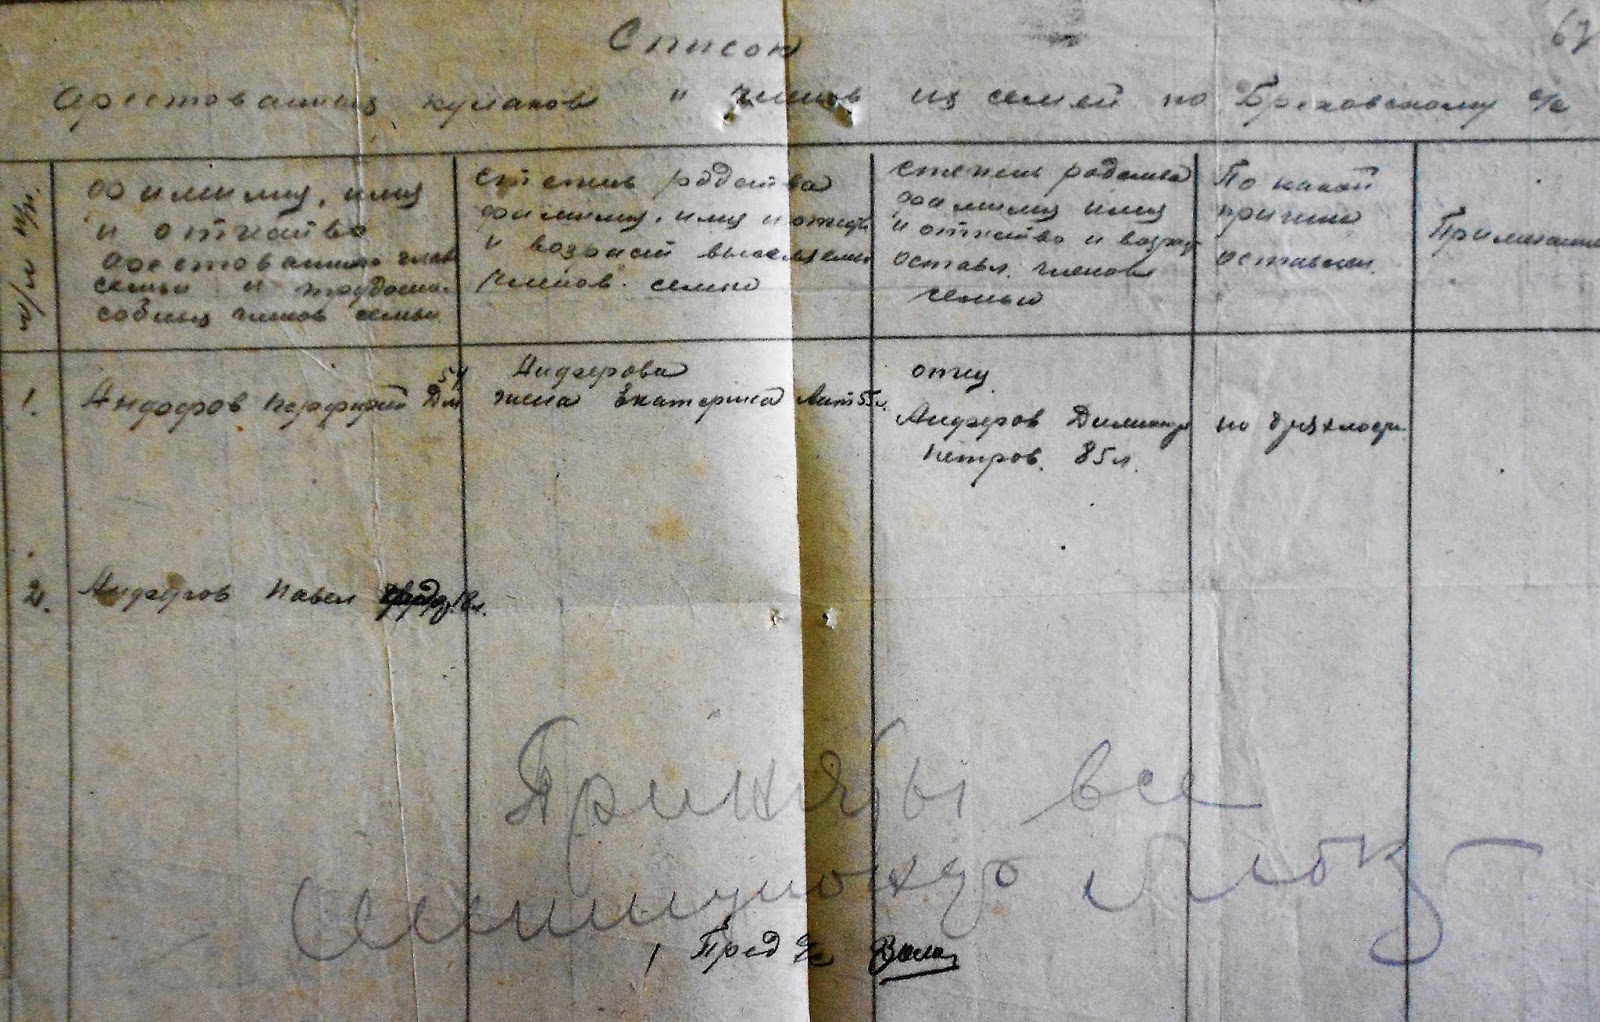 67
Список
Арестованных кулаков и членов их семей по Бреховскому с/с
№/№ п/п.
Фамилия, имя
и отчество
арестованного глав
семьи и трудоспо
собных членов семьи
степень родства
фамилия, имя и отчеств
и возраст выселяемых
членов семьи
степень родства
фамилия имя
и отчество и возраст
оставл. членов
семьи
По какой
причине
оставлен.
Примечание
1. Анферов Перфирий Дм 54
Анферова
жена Екатерина Ант 55 л.
отец
Анферов Димитр
Петров. 85 л.
по дряхлости
2. Анферов Павел 18 л.
Приняты все
Пред с/с